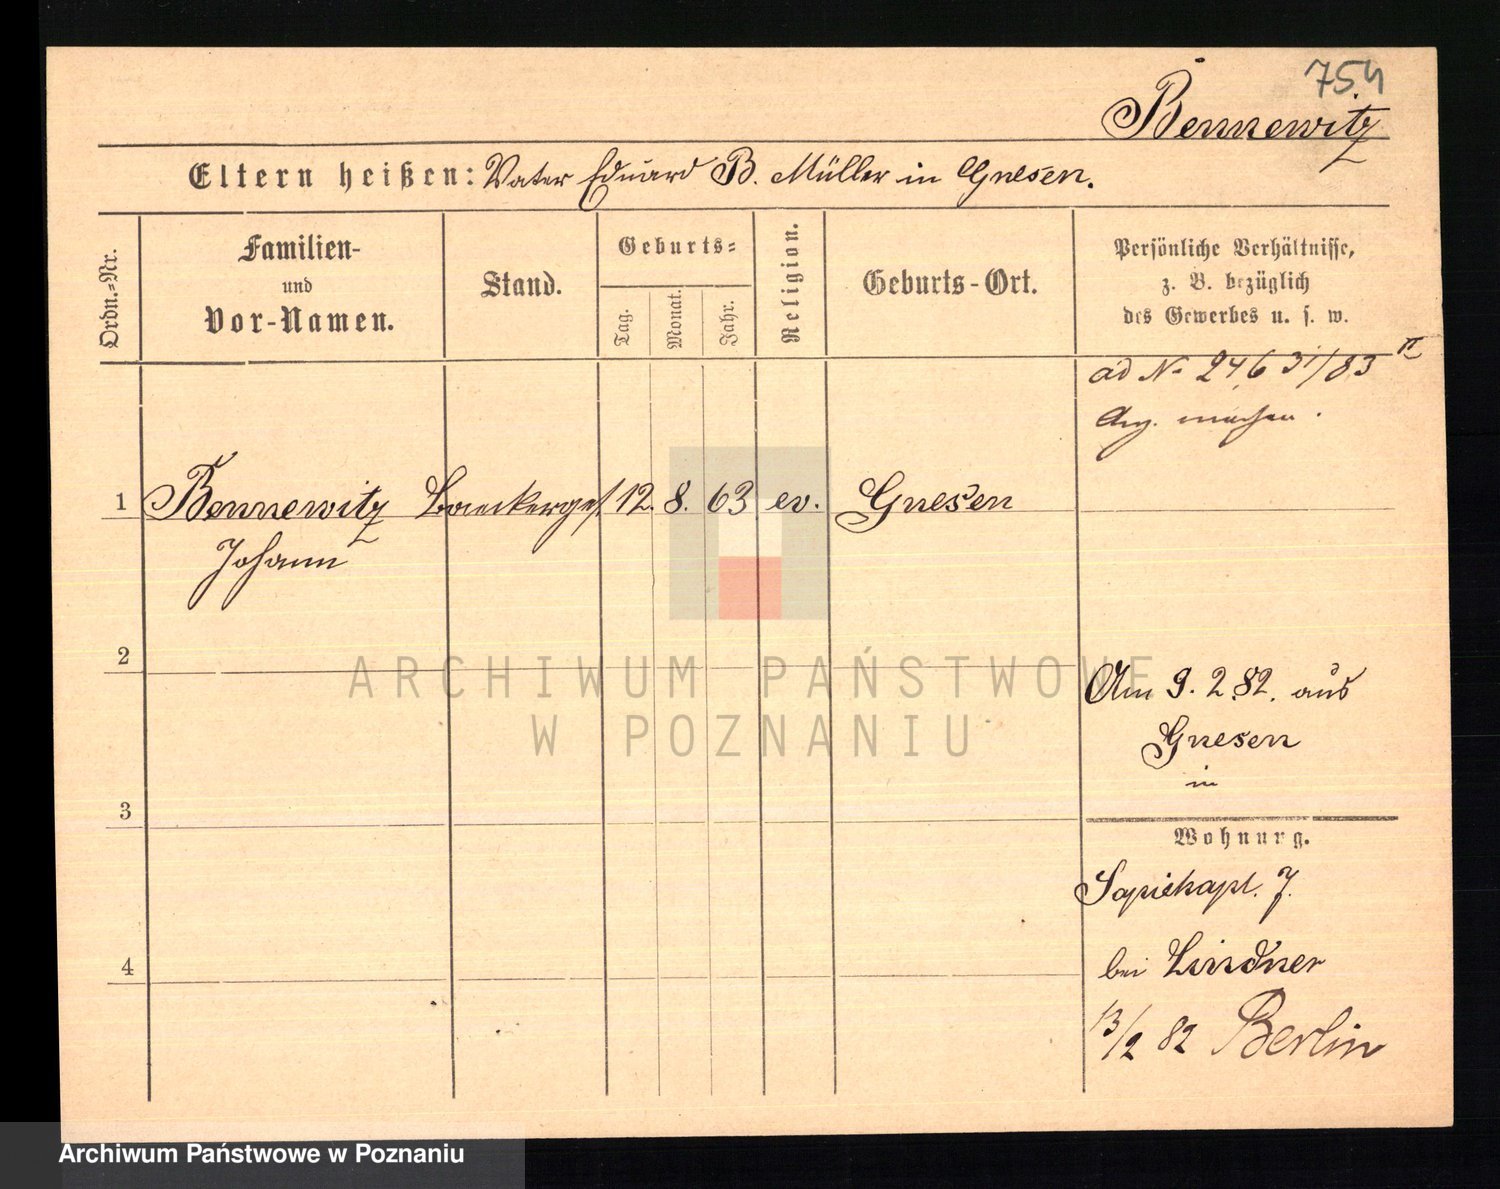 754
Bennewitz
Eltern heißen: Vater Eduard B. Müller in Gnesen.
Ordn.-Nr.
Familien-
und
Vor-Namen.
Stand.
Geburts-
Tag.
Monat.
Jahr.
Religion.
Geburts-Ort.
Persönliche Verhältnisse,
z. B. bezüglich
des Gewerbes u. s. w.
ad No 246 31/83 II
machen.
1 Bennewitz Baeckerges. 12. 8. 63 ev. Gnesen
Johann
2
Am 9. 2. 82. aus
Gnesen
in
3
Wohnung.
Sapiehapl. 7.
bei Lindner
4
13/2 82 Berlin
ARCHIWUM PAŃSTWOWE
W POZNANIU
Archiwum Państwowe w Poznaniu